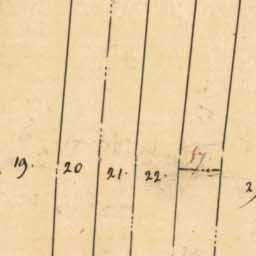 17
19. 20 21. 22.